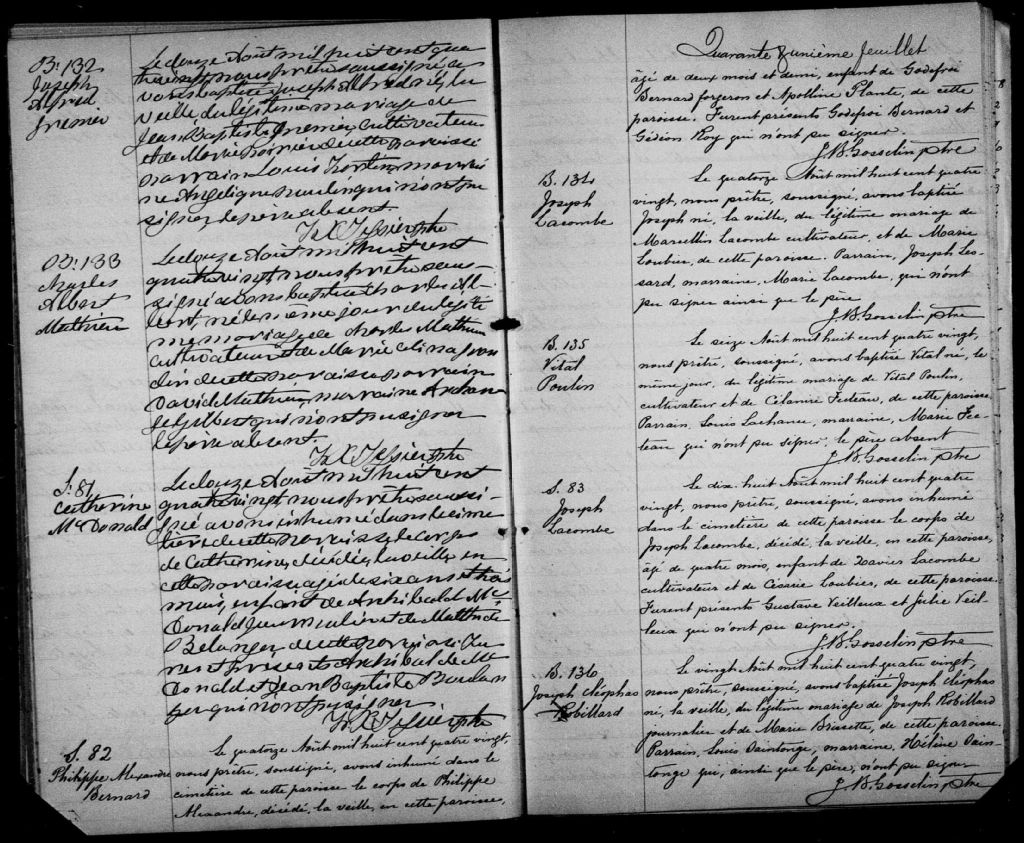 B: 132
Joseph
Alfred
Grenier
Le douze Août mil huit cent qua
tre vingt nous prêtre soussigné a
vons baptisé Joseph Alfred né la
veille du légitime mariage de
Jean Baptiste Grenier cultivateur
et de Marie Poirier de cette paroisse
parrain Louis Fortin, marrai
ne Angelique Poulin qui n'ont pu
signer le père absent.
B: 133
Charles
Albert
Mathieu
Le douze Août mil huit cent
quatre vingt, nous prêtre sous
signé avons baptisé Charles Al-
bert, né le même jour du légiti
me mariage de Charles Mathieu
cultivateur et de Marie
de cette paroisse parrain
David Mathieu, marraine
Gilbert qui n'ont pu signer
le père absent.
S: 81
Catherine
McDonald
Le douze Août mil huit cent
quatre vingt, nous prêtre soussi
gné avons inhumé dans le cime
tière de cette paroisse le corps
de Catherine, décédée la veille, en
cette paroisse agée de six ans et trois
mois, enfant de Archibald Mc
Donald et de Mathilde
Belanger de cette paroisse. Fu
rent présents Archibald Mc
Donald et Jean Baptiste Boulan
ger qui n'ont pu signer
S. 82
Philippe Alexandre
Bernard
Le quatorze Août mil huit cent quatre vingt,
nous prêtre, soussigné, avons inhumé dans le
cimetière de cette paroisse le corps de Philippe
Alexandre, décédé, la veille, en cette paroisse,
Quarante & unième feuillet
âgé de deux mois et demi, enfant de Godefroi
Bernard forgeron et Apolline Plante, de cette
paroisse. Furent présents Godefroi Bernard et
Gédéon Roy qui n'ont pu signer.
J. B. Gosselin ptre
B. 134
Joseph
Lacombe
Le quatorze Août mil huit cent quatre
vingt, nous prêtre, soussigné, avons baptisé
Joseph né, la veille, du légitime mariage de
Marcellin Lacombe cultivateur, et de Marie
Loubier, de cette paroisse. Parrain, Joseph Les-
sard, marraine, Marie Lacombe, qui n'ont
pu signer ainsi que le père
J. B. Gosselin ptre
B. 135
Vital
Poulin
Le seize Août mil huit cent quatre vingt,
nous prêtre, soussigné, avons baptisé Vital né, le
même jour, du légitime mariage de Vital Poulin,
cultivateur et de Célanire Fecteau, de cette paroisse.
Parrain, Louis Lachance, marraine, Marie Fec-
teau qui n'ont pu signer, le père absent
J. B. Gosselin ptre
S. 83
Joseph
Lacombe
Le dix huit Août mil huit cent quatre
vingt, nous prêtre, soussigné, avons inhumé
dans le cimetière de cette paroisse le corps de
Joseph Lacombe, décédé, la veille, en cette paroisse,
âgé de quatre mois, enfant de Xavier Lacombe
cultivateur et de Césarie Loubier, de cette paroisse.
Furent présents Gustave Veilleux et Julie Veil-
leux qui n'ont pu signer.
J. B. Gosselin ptre
B. 136
Joseph Cléophas
Robillard
Le vingt Août mil huit cent quatre vingt,
nous prêtre, soussigné, avons baptisé Joseph Cléophas
né, la veille, du légitime mariage de Joseph Robillard
journalier et de Marie Brissette, de cette paroisse.
Parrain, Louis Daintonge, marraine, Hélène Dain-
tonge qui, ainsi que le père, n'ont pu signer
J. B. Gosselin ptre